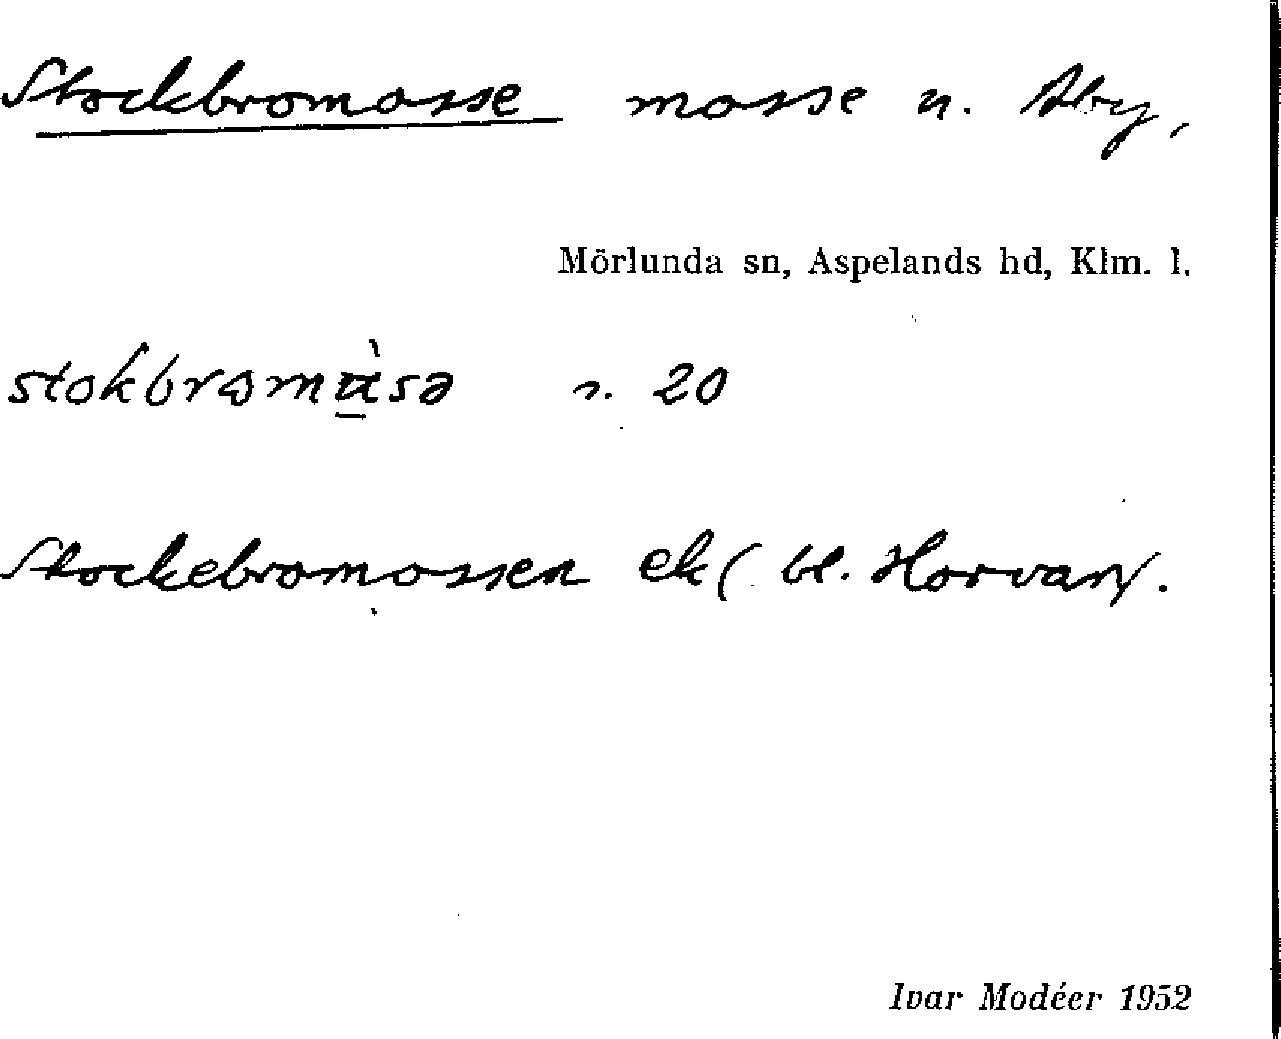 Stockbromosse mosse n. Åby,
Mörlunda sn, Aspelands hd, Klm. l.
stokbromu̠̇sə n. 20
Stockebromossen ek( bl. Horvary.
Ivar Modéer 1952